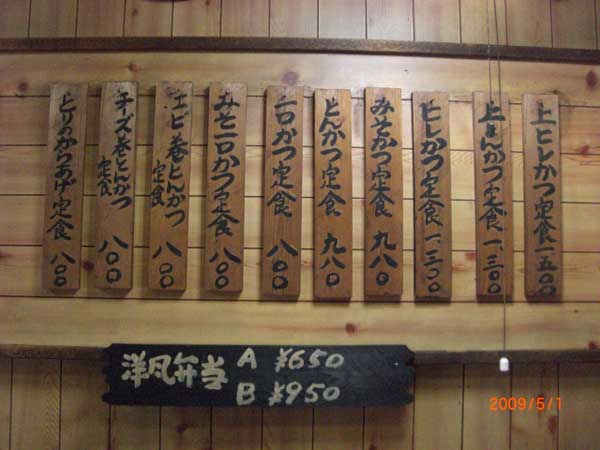 上ヒレかつ定食 一、五〇〇
上とんかつ定食 一、三〇〇
ヒレかつ定食 一、三〇〇
みそかつ定食 九八〇
とんかつ定食 九八〇
一口かつ定食 八〇〇
みそ一口かつ定食 八〇〇
エビ巻とんかつ定食 八〇〇
チーズ巻とんかつ定食 八〇〇
とりのからあげ定食 八〇〇
洋風弁当 A ¥650
B ¥950
2009/5/1